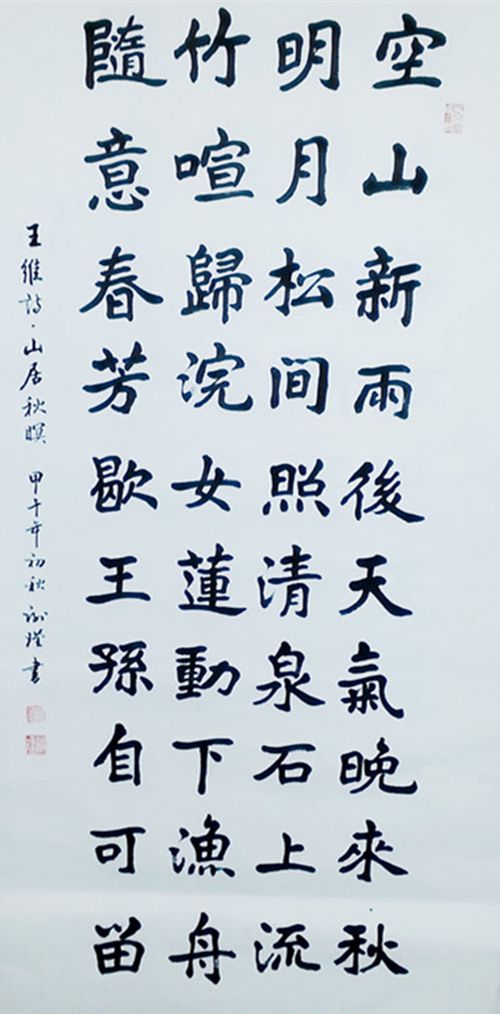 空山新雨後天氣晚來秋
明月松間照清泉石上流
竹喧歸浣女蓮動下漁舟
隨意春芳歇王孫自可留
王維詩·山居秋暝 甲午年初秋 書